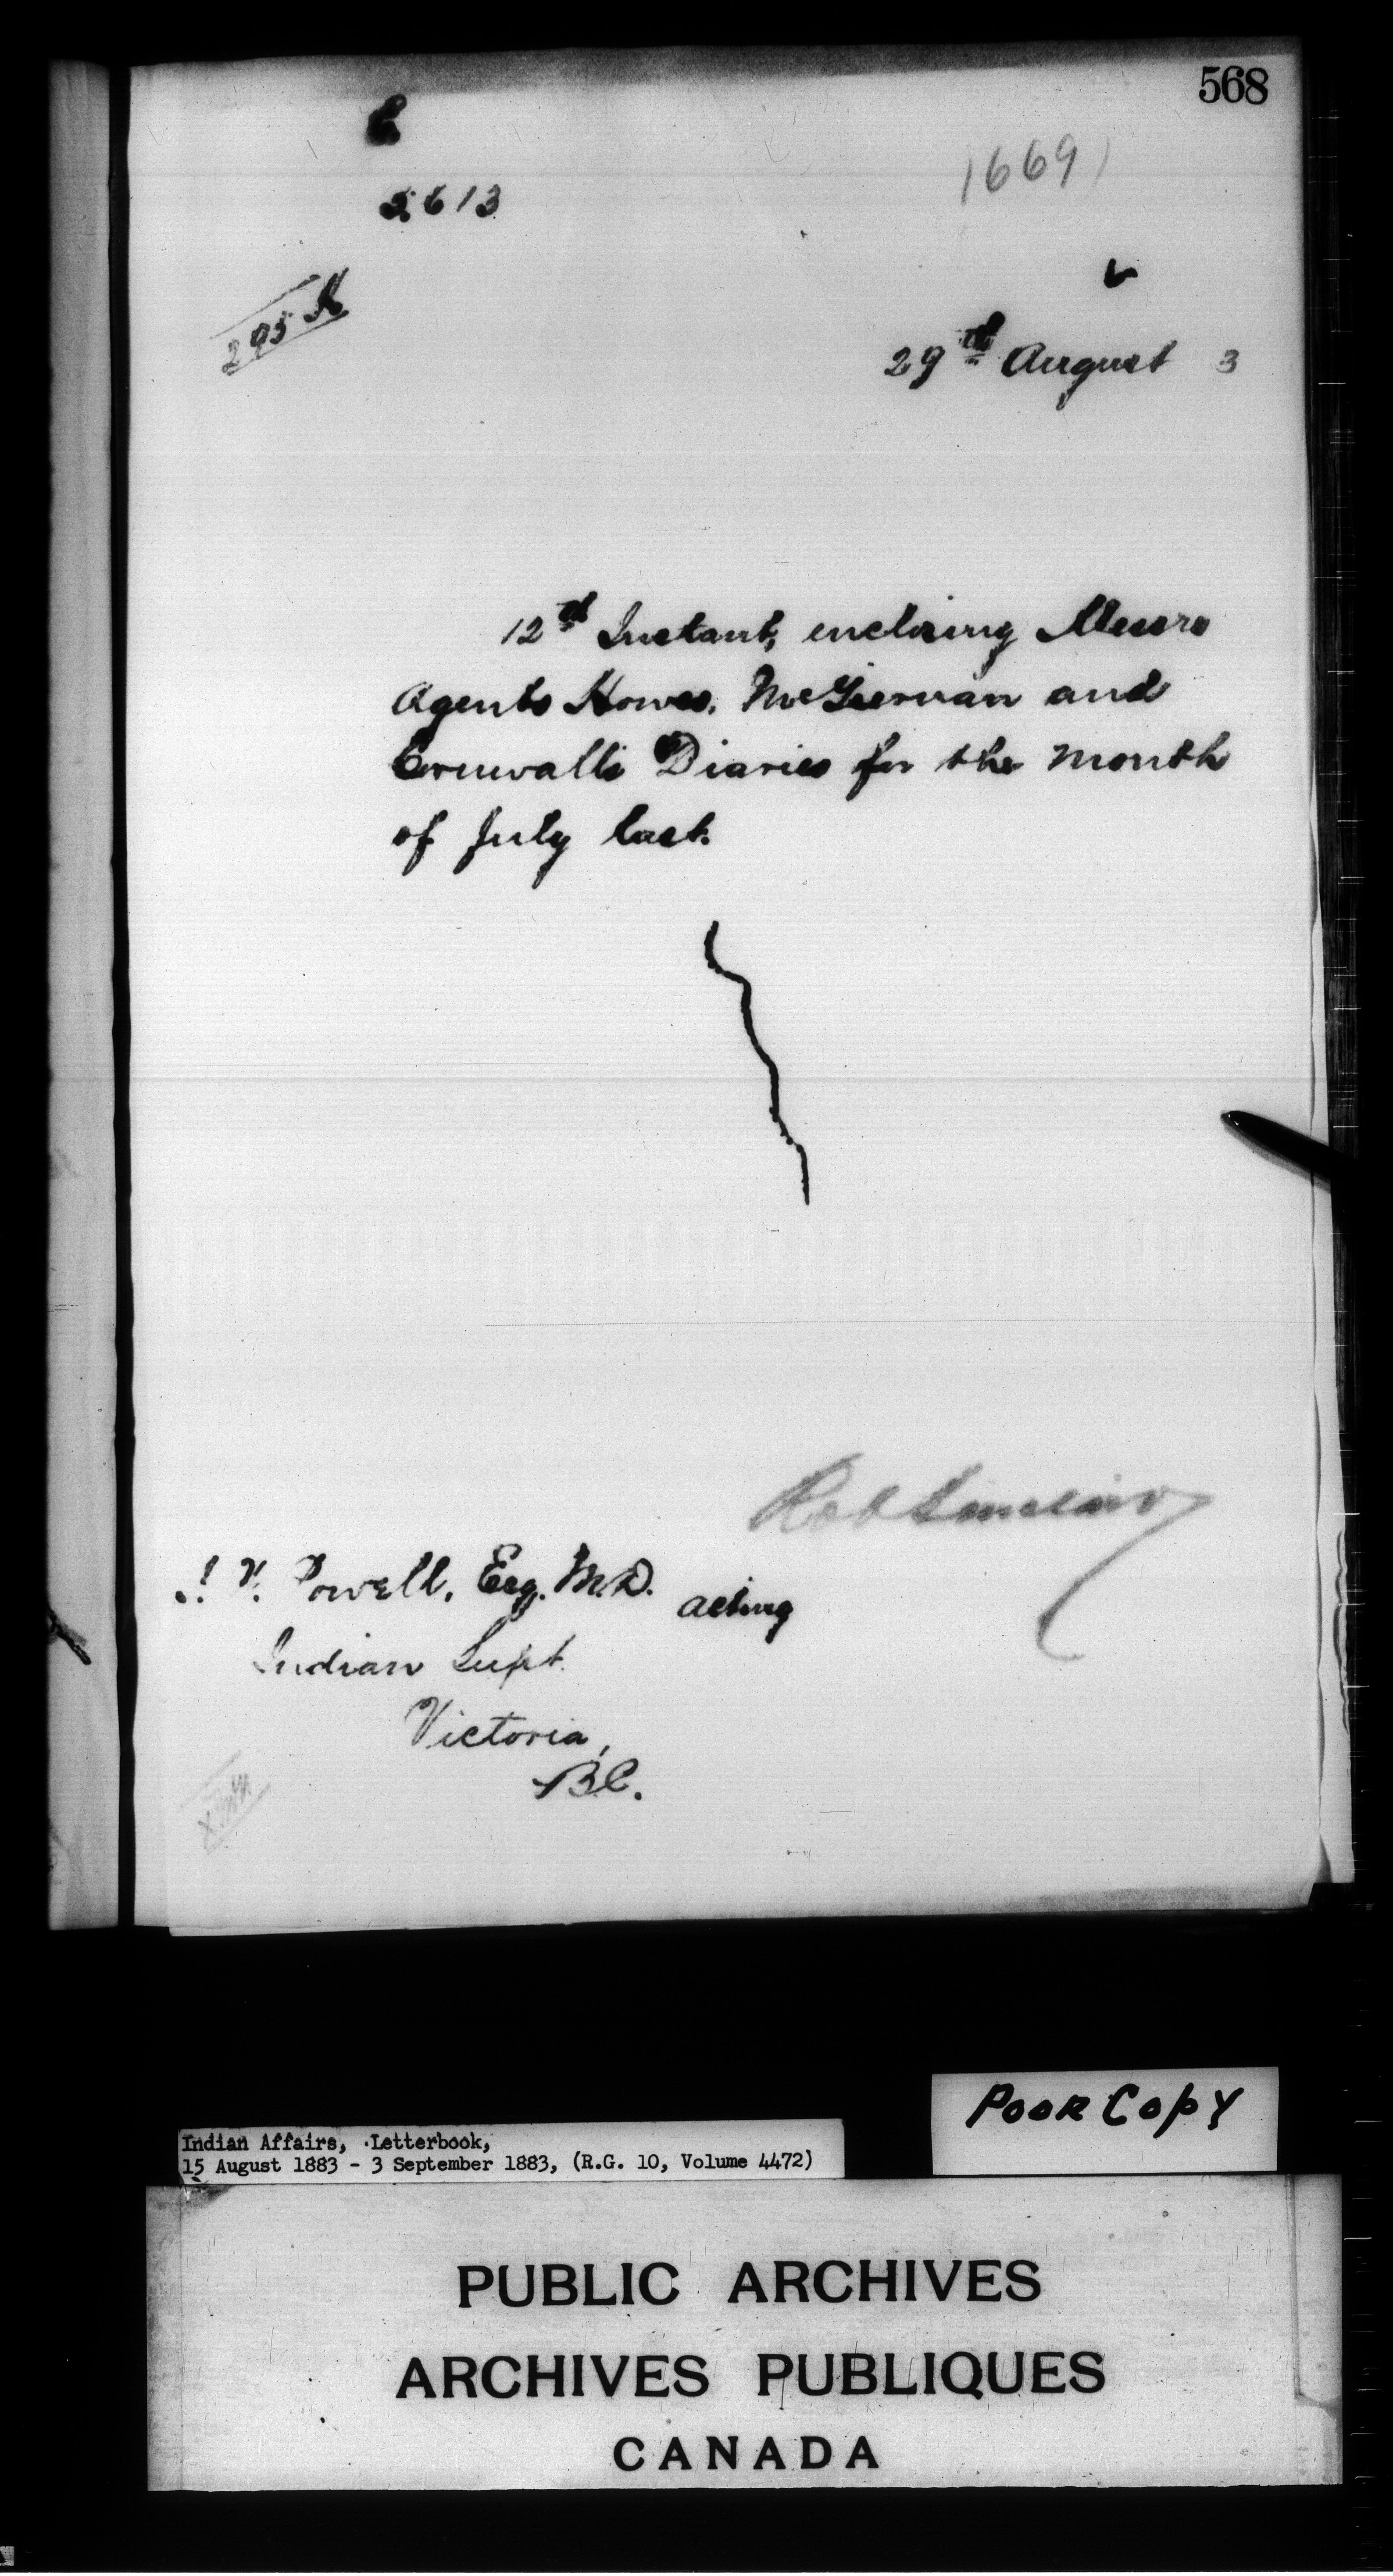 568
1669
5613
295
29th August 3
12th Instant, enclosing Messrs
Agents Howes, McTiernan and
Cornwalls Diaries for the month
of July last.
Rob Sinclair
I. W. Powell, Esq. M.D.
acting
Indian Supt.
Victoria,
B.C.
Poor Copy
Indian Affairs, Letterbook,
15 August 1883 - 3 September 1883, (R.G. 10, Volume 4472)
PUBLIC ARCHIVES
ARCHIVES PUBLIQUES
CANADA